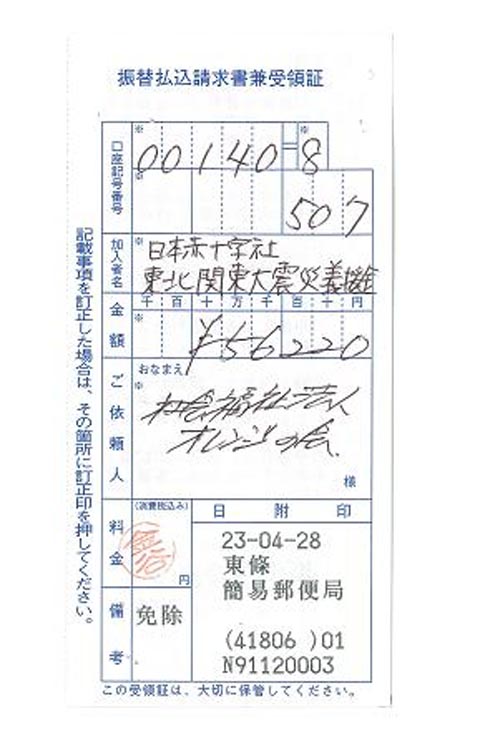 振替払込請求書兼受領証
口座記号番号
※
00140
=
※
8
※
507
加入者名
※
日本赤十字社
東北関東大震災義援金
金額
千百十万千百十円
※
¥56220
ご依頼人
おなまえ
※
社会福祉法人
オレンジの会
様
料金
(消費税込み)
円
日附印
23-04-28
東條
簡易郵便局
(41806 )01
N91120003
備考
免除
記載事項を訂正した場合は、その箇所に訂正印を押してください。
この受領証は、大切に保管してください。